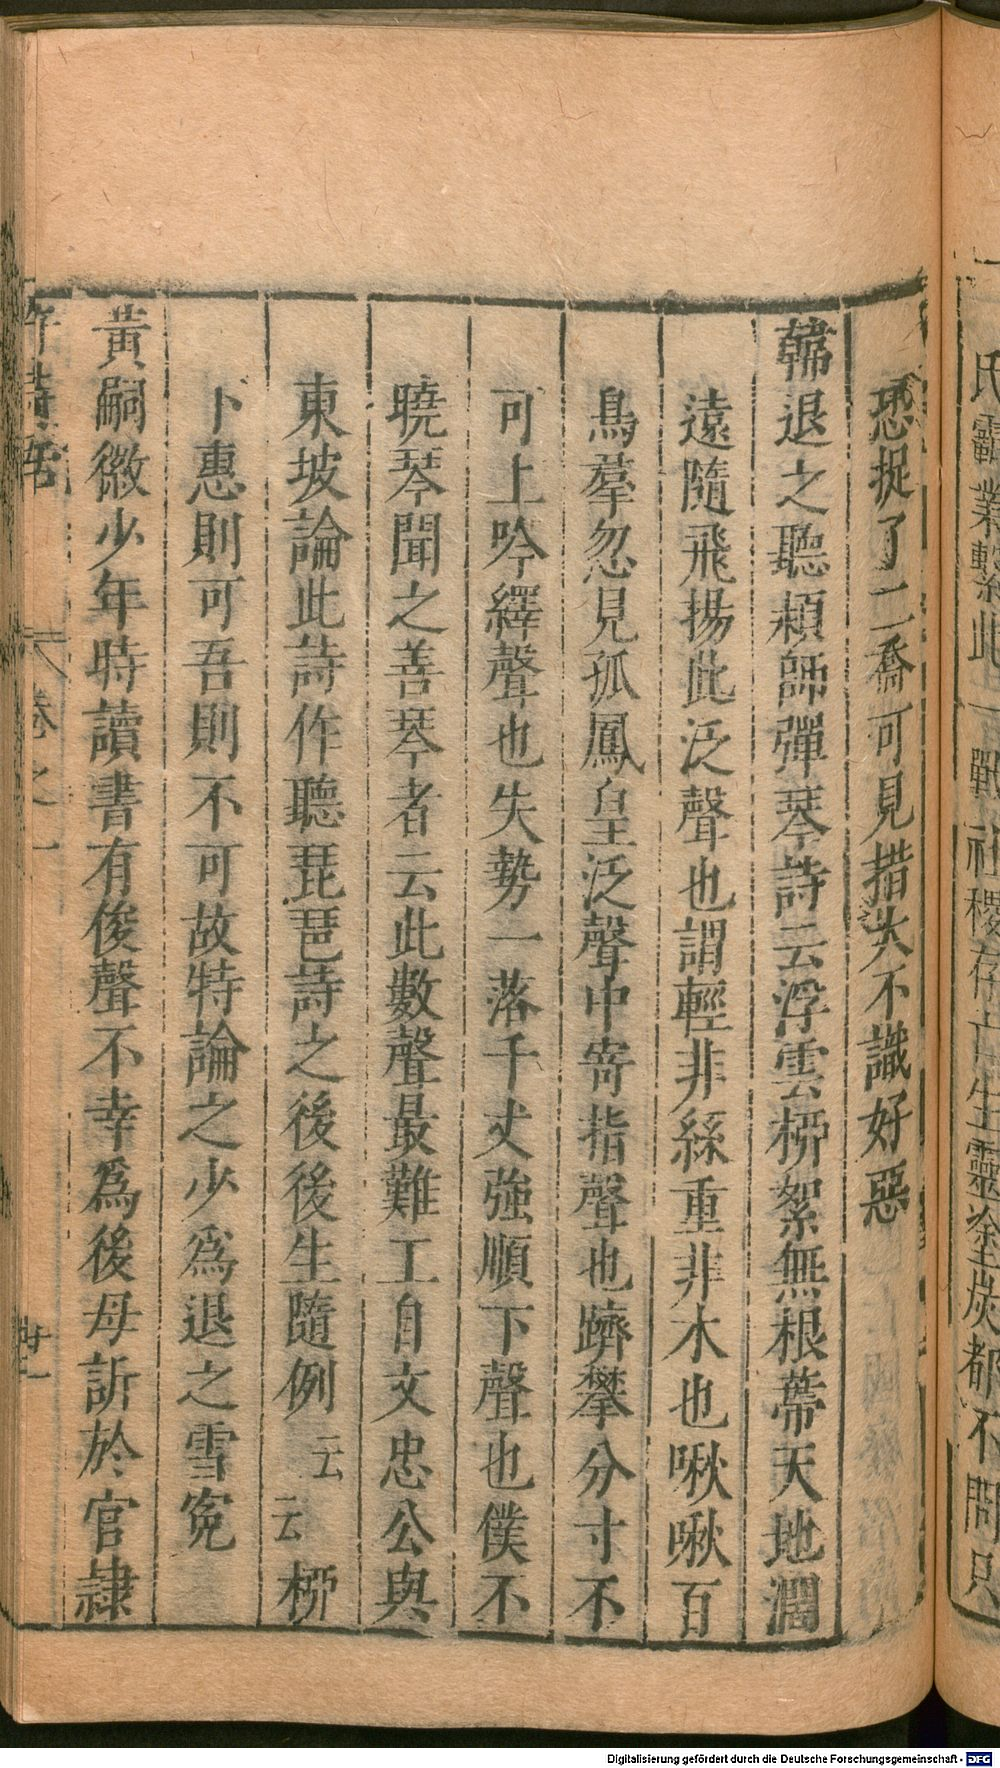 氏霸業繫此一戰社稷存亡生靈塗炭都不問只
恐捉了二喬可見措大不識好惡
韓退之聽穎師彈琴詩云浮雲桺絮無根蔕天地濶
遠隨飛揚此泛聲也謂輕非絲重非木也啾啾百
鳥羣忽見孤鳳皇泛聲中寄指聲也躋攀分寸不
可上吟繹聲也失勢一落千丈強順下聲也僕不
曉琴聞之善琴者云此數聲最難工自文忠公與
東坡論此詩作聽琵琶詩之後後生隨例云云桺
卞惠則可吾則不可故特論之少爲退之雪寃
黃嗣徽少年時讀書有俊聲不幸爲後母訴於官隷
許詩話
卷之一
Digitalisierung gefördert durch die Deutsche Forschungsgemeinschaft - DFG